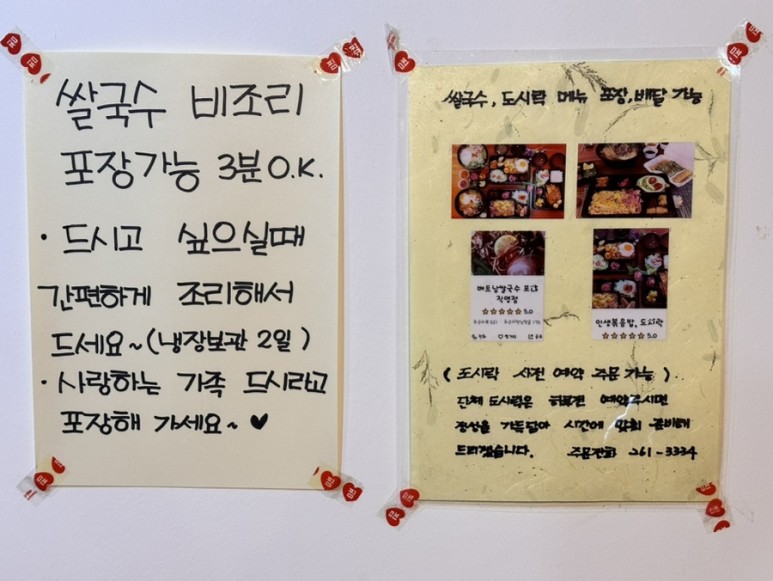 쌀국수 비조리
포장가능 3분 O.K.
· 드시고 싶으실때
간편하게 조리해서
드세요~(냉장보관 2일)
· 사랑하는 가족 드시라고
포장해 가세요~ ♥
쌀국수, 도시락 메뉴 포장, 배달 가능
베트남쌀국수
직영점
5.0
인생볶음밥, 도시락
5.0
(도시락 사전 예약 주문 가능)
단체 도시락은 예약주시면
정성을 가득담아 시간에 맞춰 준비해
드리겠습니다. 주문전화 261-3334